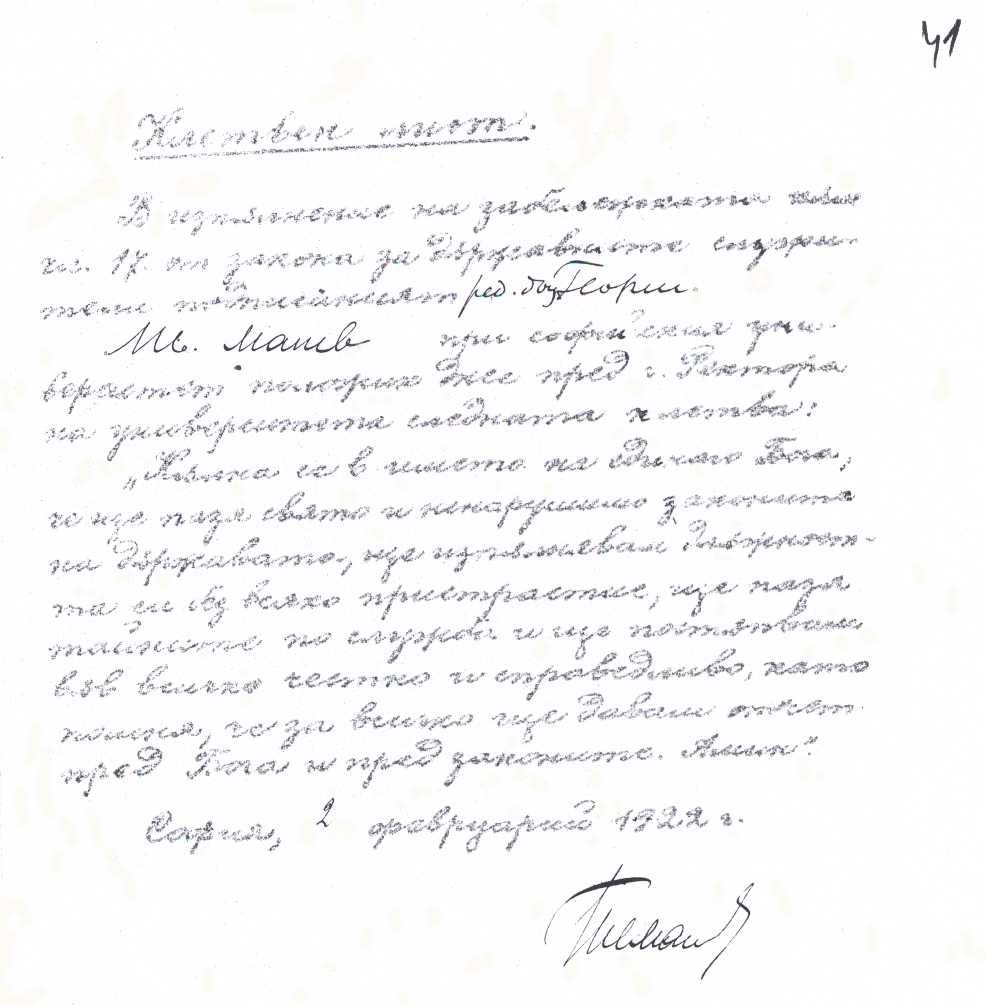 41
Клетвен лист.
В изпълнение на забележката към
чл. 17. от закона за държавните служи-
тели подписаният ред. доц. Георги
Ив. Манев при софийския уни-
верситет полагам днес пред г. Ректора
на университета следната клетва:
„Кълна се в името на Единаго Бога,
че ще пазя свято и ненарушимо законите
на държавата, ще изпълнявам длъжност-
та си без всяко пристрастие, ще пазя
тайните по служба и ще постъпвам
във всичко честно и справедливо, като
помня, че за всичко ще давам отчет
пред Бога и пред законите. Амин“.
София, 2 февруарий 1922 г.